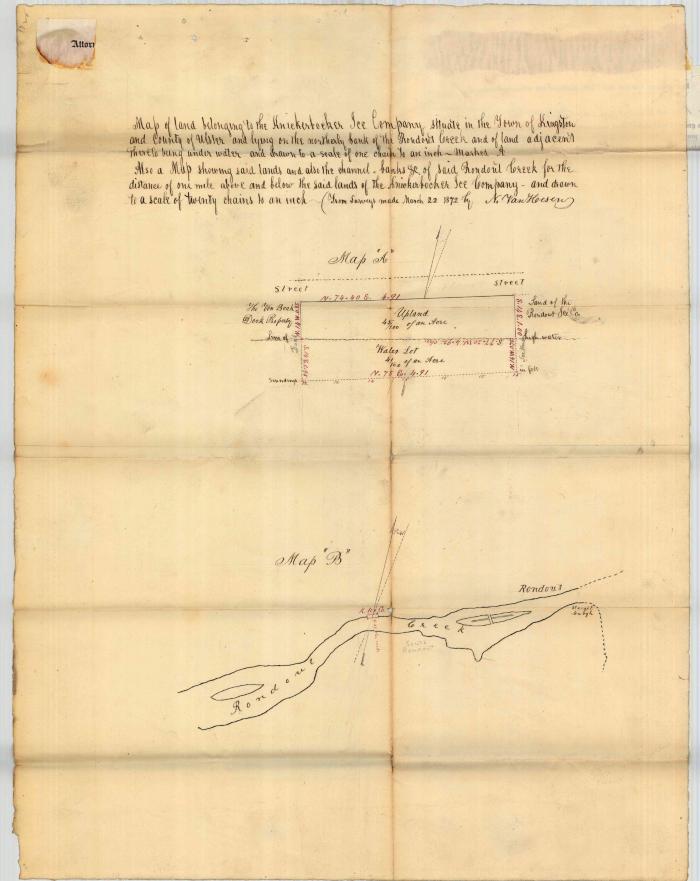 Attorn
Map of land belonging to the Knickerbocker Ice Company situate in the Town of Kingston
and County of Ulster and lying on the northerly bank of the Rondout Creek and of land adjacent
thereto being under water and drawn to a scale of one chain to an inch - Marked A
Also a Map showing said lands and also the channel - banks &c. of said Rondout Creek for the
distance of one mile above and below the said lands of the Knickerbocker Ice Company - and drawn
to a scale of twenty chains to an inch (From surveys made March 22 1872 by N. Van Hoesen)
Map "A"
Street
Street
N. 74-40 E. 4.91
The
Dock Property
Land of the
Rondout Ice Co.
Upland
/100 of an Acre
Line of
high water
Water Lot
/100 of an Acre
N. 75 E. 4.91
Soundings
in feet
Map "B"
Rondout
Creek
South
Rondout
Rondout